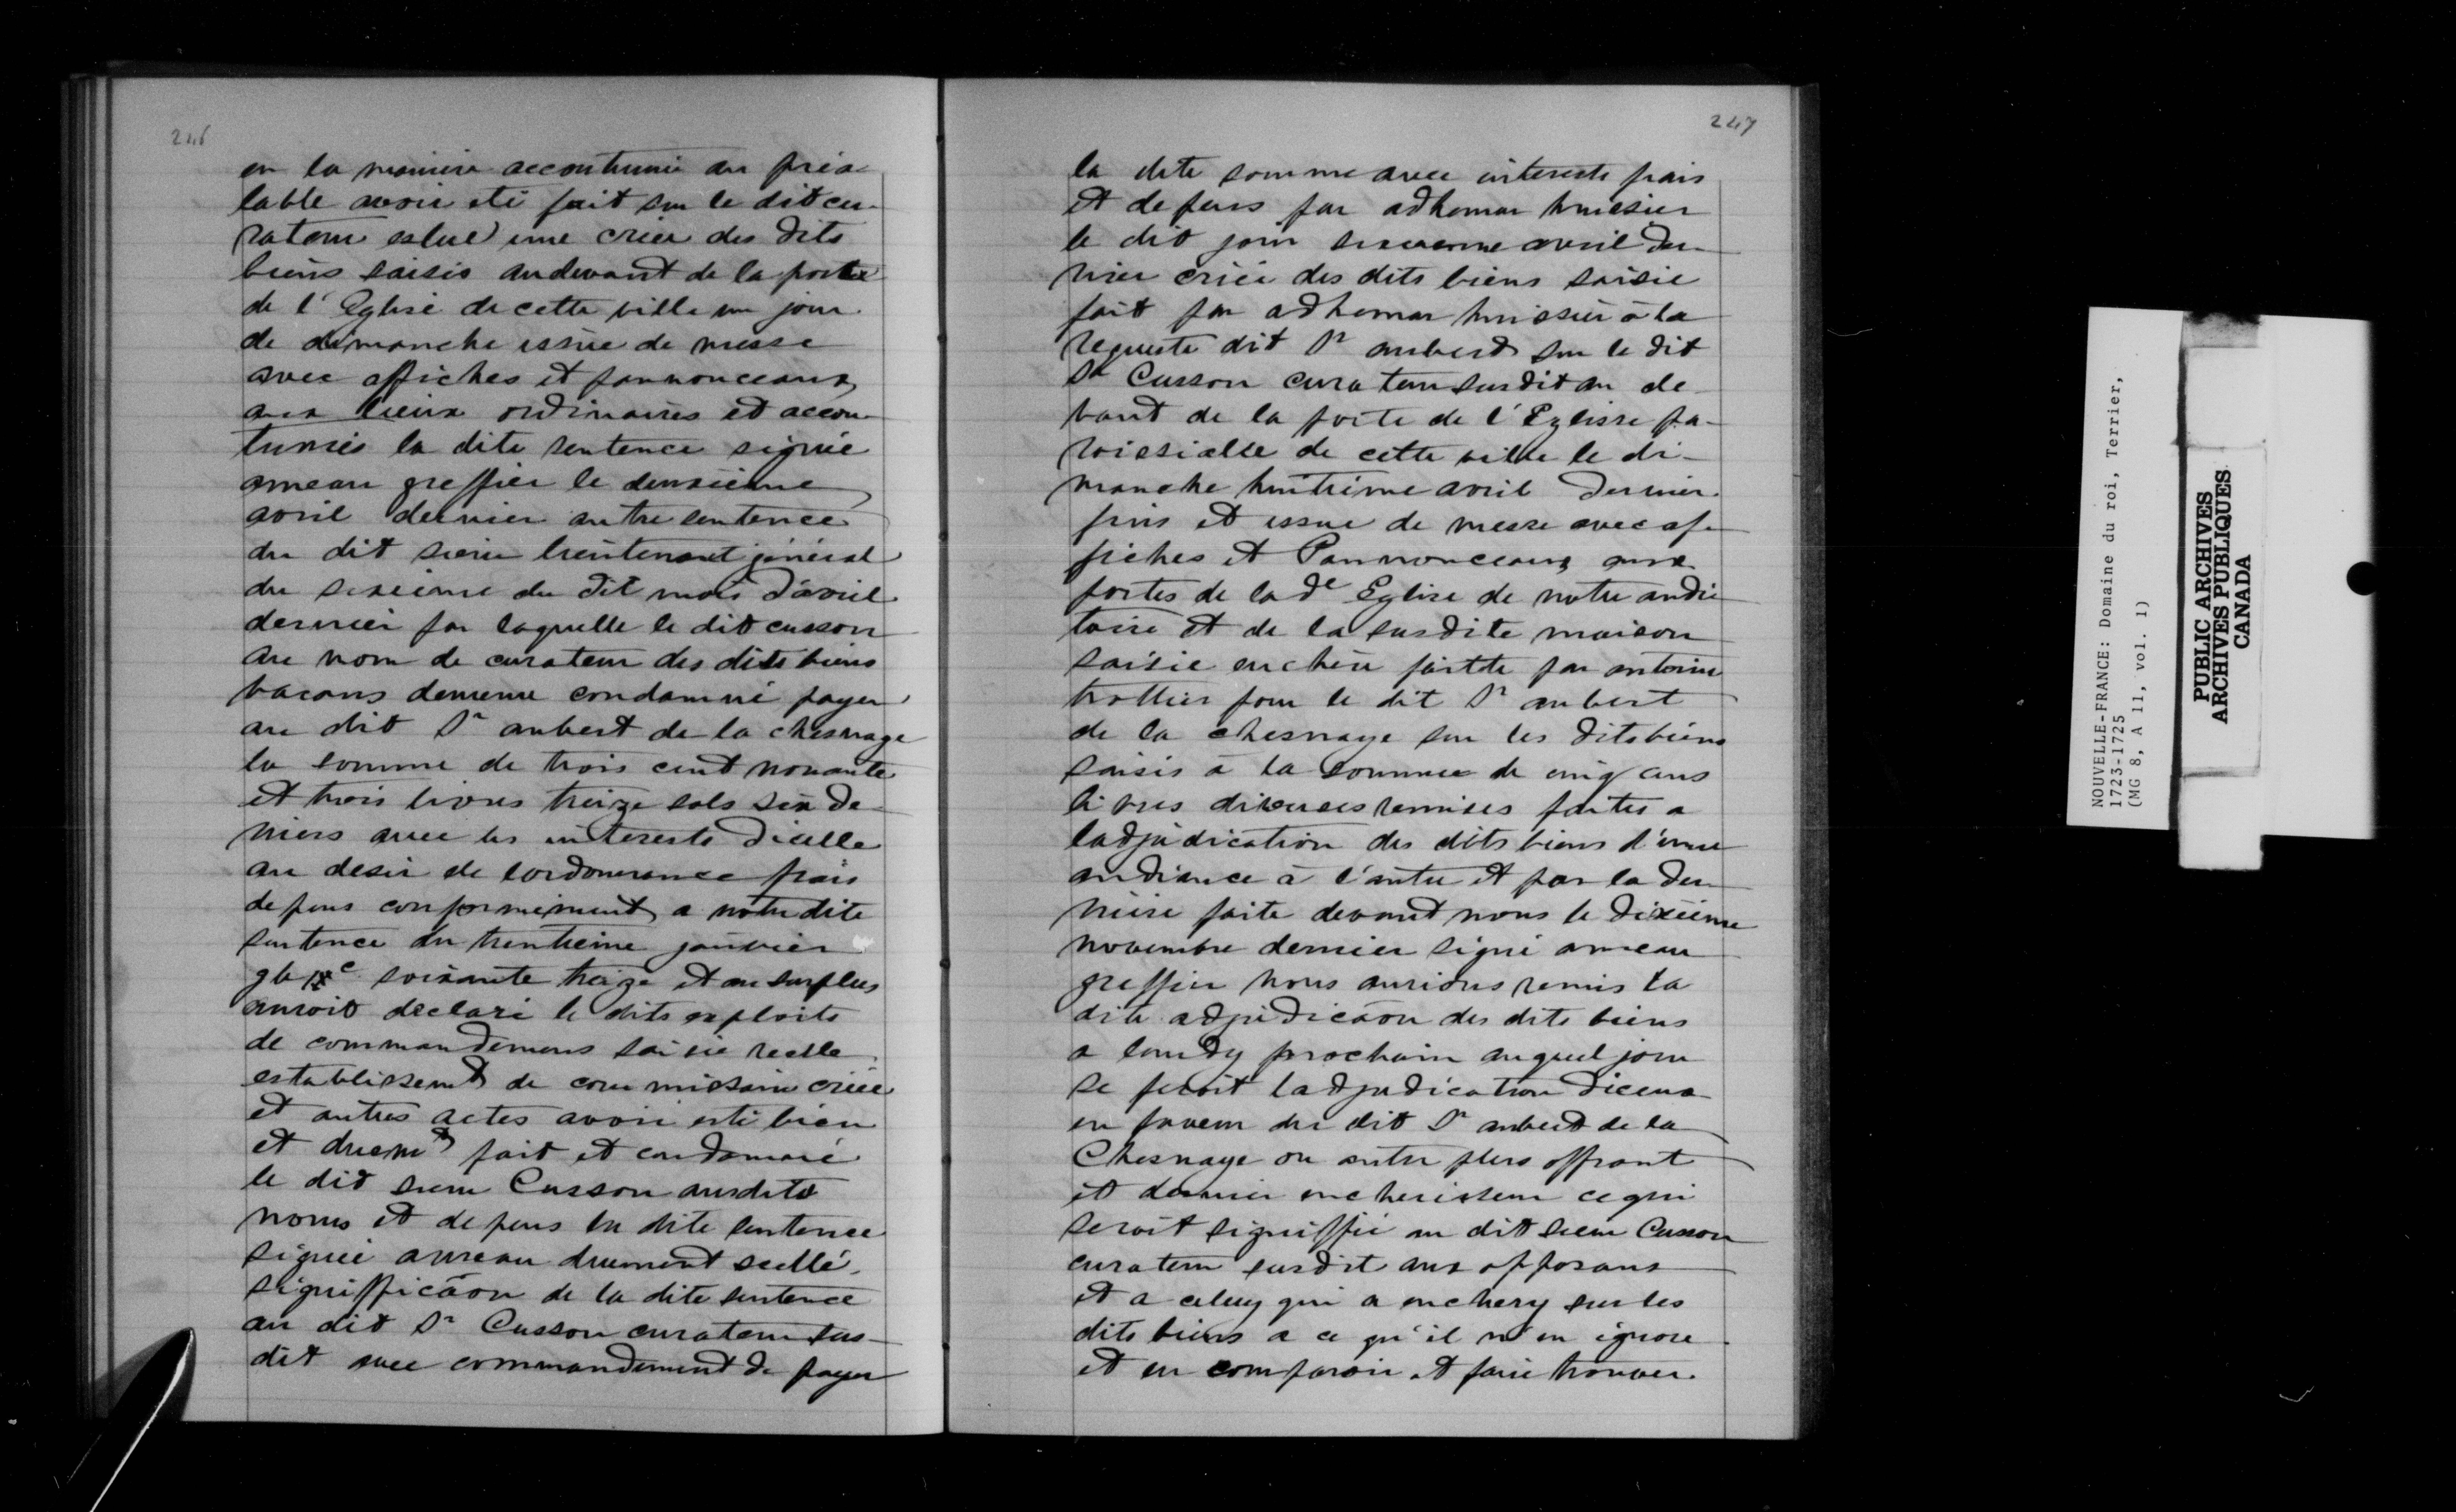 246
en la maniere accoutumée au préa-
lable avoir eté fait sur le dit cu-
rateur eslue une criée des dits
biens saisis audevant de la porte
de l'Eglise de cette ville un jour
de dimanche issue de messe
avec affiches et pannonceaux
aux lieux ordinaires et accou-
tumés la dite sentence signée
ameau greffier le deuxième
avril dernier autre sentence
du dit sieur lieutenant général
du sixieme du dit mois d'avril
dernier par laquelle le dit cusson
au nom de curateur des dits biens
vacans demeure condamné payer
au dit Sr aubert de la chesnaye
la somme de trois cent nonante
et trois livres treize sols six de-
niers avec les interests dicelle
au desir de lordonnance frais
depens conformement a notre dite
sentence du trentieme janvier
soixante treize et au surplus
auroit declaré le dits exploits
de commandemens saisie reelle
establissemt de commissaire criée
et autres actes avoir esté bien
et duemt fait et condamné
le dit sieur Cusson ausdits
noms et depens la dite sentence
signée ameau duement scellé,
signifficaon de la dite sentence
au dit Sr Cusson curateur sus-
dit avec commandement de payer
247
la dite somme avec interests frais
et depens par adhemar huissier
le dit jour sixieme avril der-
nier criée des dits biens saisie
fait par adhemar huissier à la
requeste dit Sr aubert sur le dit
Sr Cusson curateur susdit au de-
vant de la porte de l'Eglisse pa-
roissialle de cette ville le di-
manche huitième avril dernier
fins et issue de messe avec af-
fiches et Pannonceaux aux
portes de lade Eglise de notre audi-
toire et de la susdite maison
saisie enchère faitte par antoine
trottier pour le dit Sr aubert
de la chesnaye sur les dits biens
saisis à la somme de cinq cens
livres diverses remises faites a
ladjudication des dits biens d'une
audiance à l'autre et par la der-
nière faite devant nous le dixième
novembre dernier signé ameau
greffier nous aurions remis la
dite adjudicãon des dits biens
a lundy prochain auquel jour
se feroit ladjudication diceux
en faveur du dit Sr aubert de la
Chesnaye ou autre plus offrant
et dernier encherisseur ce qui
seroit signiffié au dit sieur Cusson
curateur susdit aux opposans
et a celuy qui a enchery sur les
dits biens a ce qu'il n'en ignore
et en comparoir et faire trouver
NOUVELLE-FRANCE: Domaine du roi, Terrier,
1723-1725
(MG 8, A 11, vol. 1)
PUBLIC ARCHIVES
ARCHIVES PUBLIQUES
CANADA